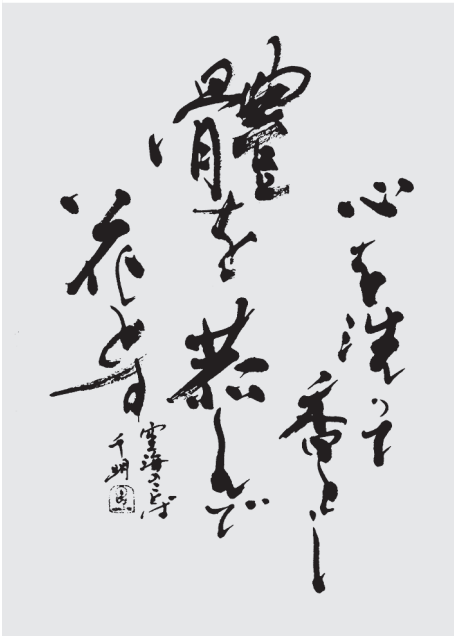 心を洗って香とし
體を恭しんで
花とす
空海のことば
千明